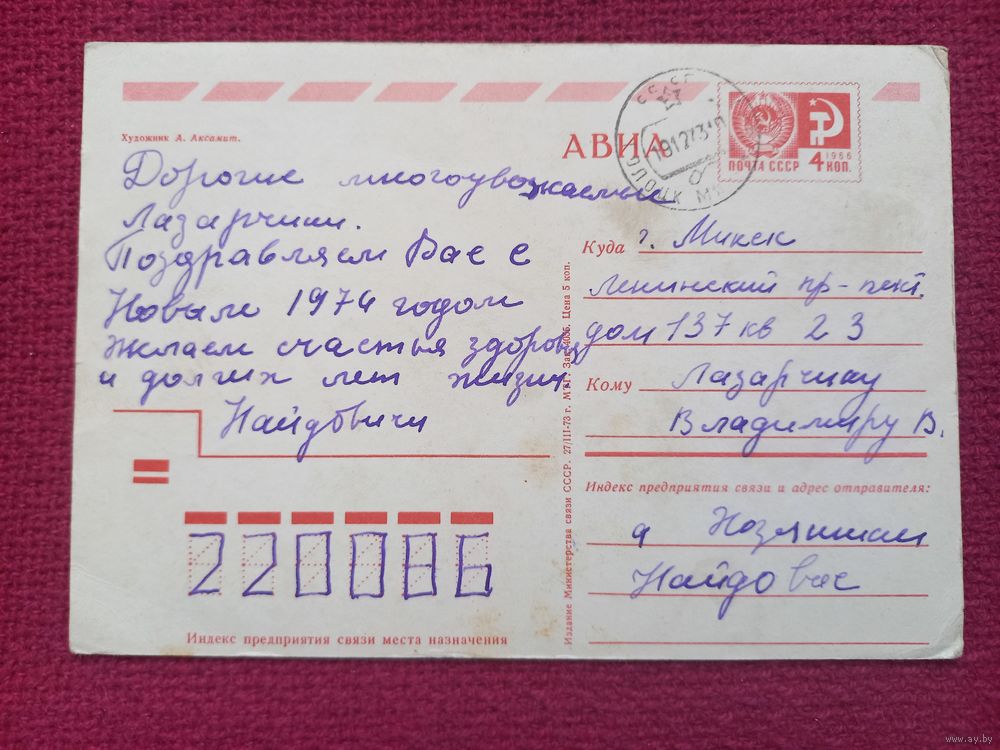 Художник А. Аксамит.
АВИА
ПОЧТА СССР
1966
4 КОП.
181273
Дорогие многоуважаемые
Лазарчики.
Поздравляем Вас с
Новым 1974 годом
желаем счастья здоровья
и долгих лет жизни.
Найдовичи
Куда г. Минск
Ленинский пр-пект.
дом 137 кв 23
Кому Лазарчику
Владимиру В.
Индекс предприятия связи и адрес отправителя:
Найдовас
220086
Индекс предприятия связи места назначения
Издание Министерства связи СССР. 27/III-73 г. МТГ. Зак. Цена 5 коп.
www.ay.by